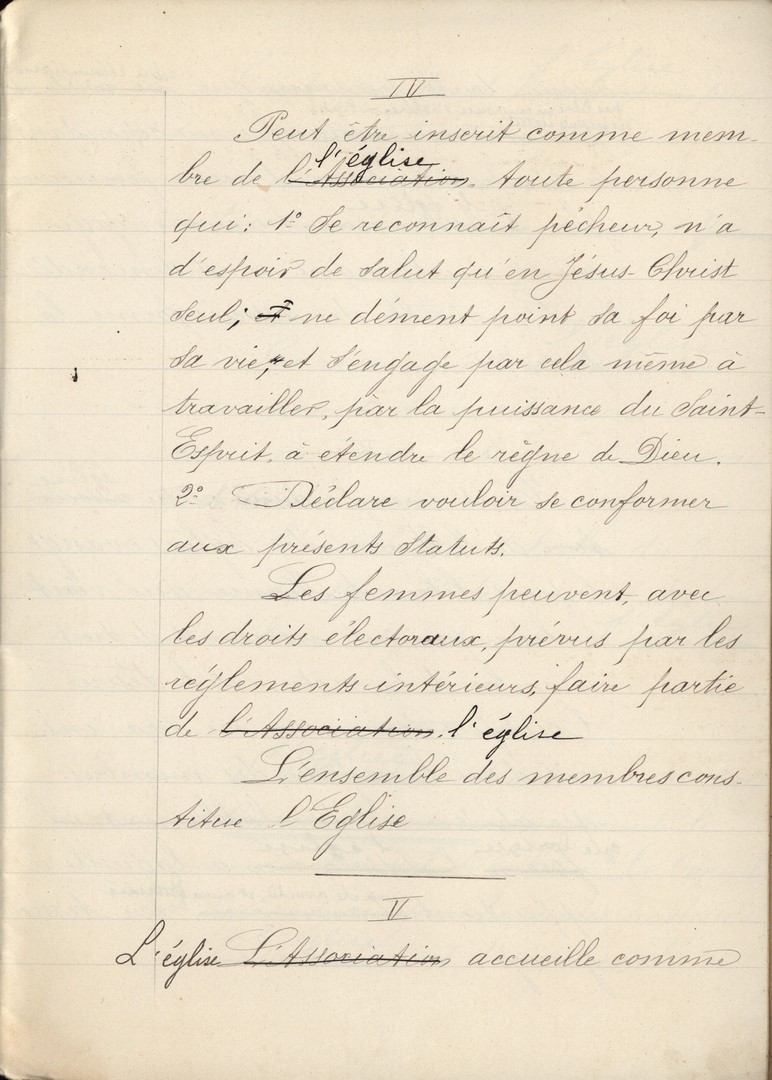 IV
Peut être inscrit comme mem-
l'église
bre de l'Association toute personne
qui: 1º Se reconnaît pécheur, n'a
d'espoir de Salut qu'en Jésus-Christ
Seul; et ne dément point sa foi par
sa vie, et s'engage par cela même à
travailler, par la puissance du Saint-
Esprit, à étendre le règne de Dieu.
2º Déclare vouloir se conformer
aux présents Statuts.
Les femmes peuvent, avec
les droits électoraux, prévus par les
réglements intérieurs, faire partie
de l'Association. l'église
L'ensemble des membres cons-
titue l'Eglise
V
L'église L'Association accueille comme